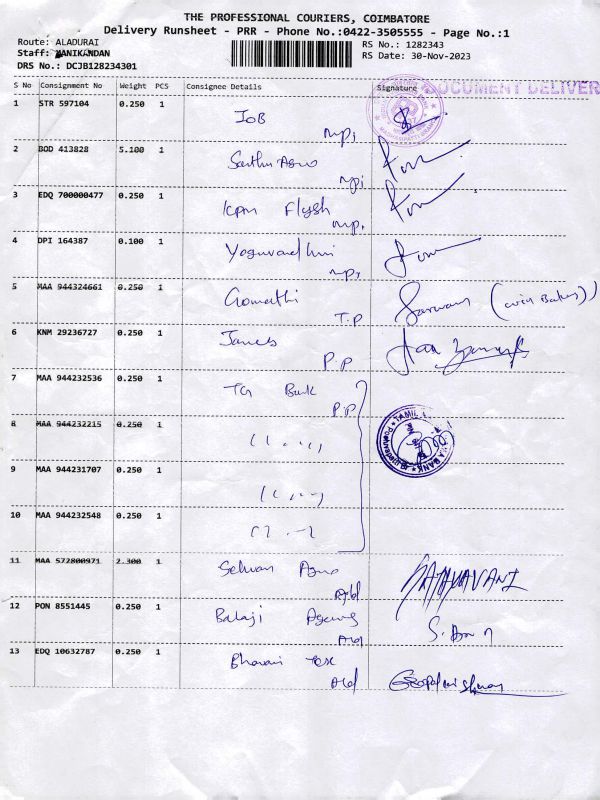 THE PROFESSIONAL COURIERS, COIMBATORE
Delivery Runsheet - PRR - Phone No.:0422-3505555 - Page No.:1
Route: ALADURAI
Staff: MANIKANDAN
DRS No.: DCJB128234301
RS No.: 1282343
RS Date: 30-Nov-2023
S No Consignment No Weight PCS Consignee Details Signature
DOCUMENT DELIVER
1 STR 597104 0.250 1 IOB
mpi
2 BOD 413828 5.100 1
mpi
3 EDQ 700000477 0.250 1 kpm Flysh
mpi
4 DPI 164387 0.100 1 Yoguvardhini
mpi
5 MAA 944324661 0.250 1 Gomathi
T.P
6 KNM 29236727 0.250 1 James
P.P
7 MAA 944232536 0.250 1 Bank
P.P
8 MAA 944232215 0.250 1
TAMIL
BANK
9 MAA 944231707 0.250 1
10 MAA 944232548 0.250 1
11 MAA 572800971 2.300 1 Selvan Agro
Ald SATHYAVANI
12 PON 8551445 0.250 1 Balaji Agency
Ald
13 EDQ 10632787 0.250 1 Bhavani Tex
Ald Gopalakrishnan